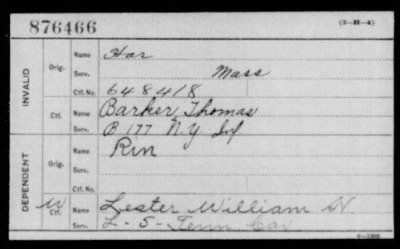 876466
(3-H-4)
INVALID
Orig.
Name Har
Serv. Mass
Ctf. No. 648418
Ctf.
Name Barker, Thomas
Serv. B 177 N.Y. Inf
DEPENDENT
Orig.
Name Rin
Serv.
Ctf. No.
W
Ctf.
Name Lester William H.
Serv. L-5-Tenn Cav.